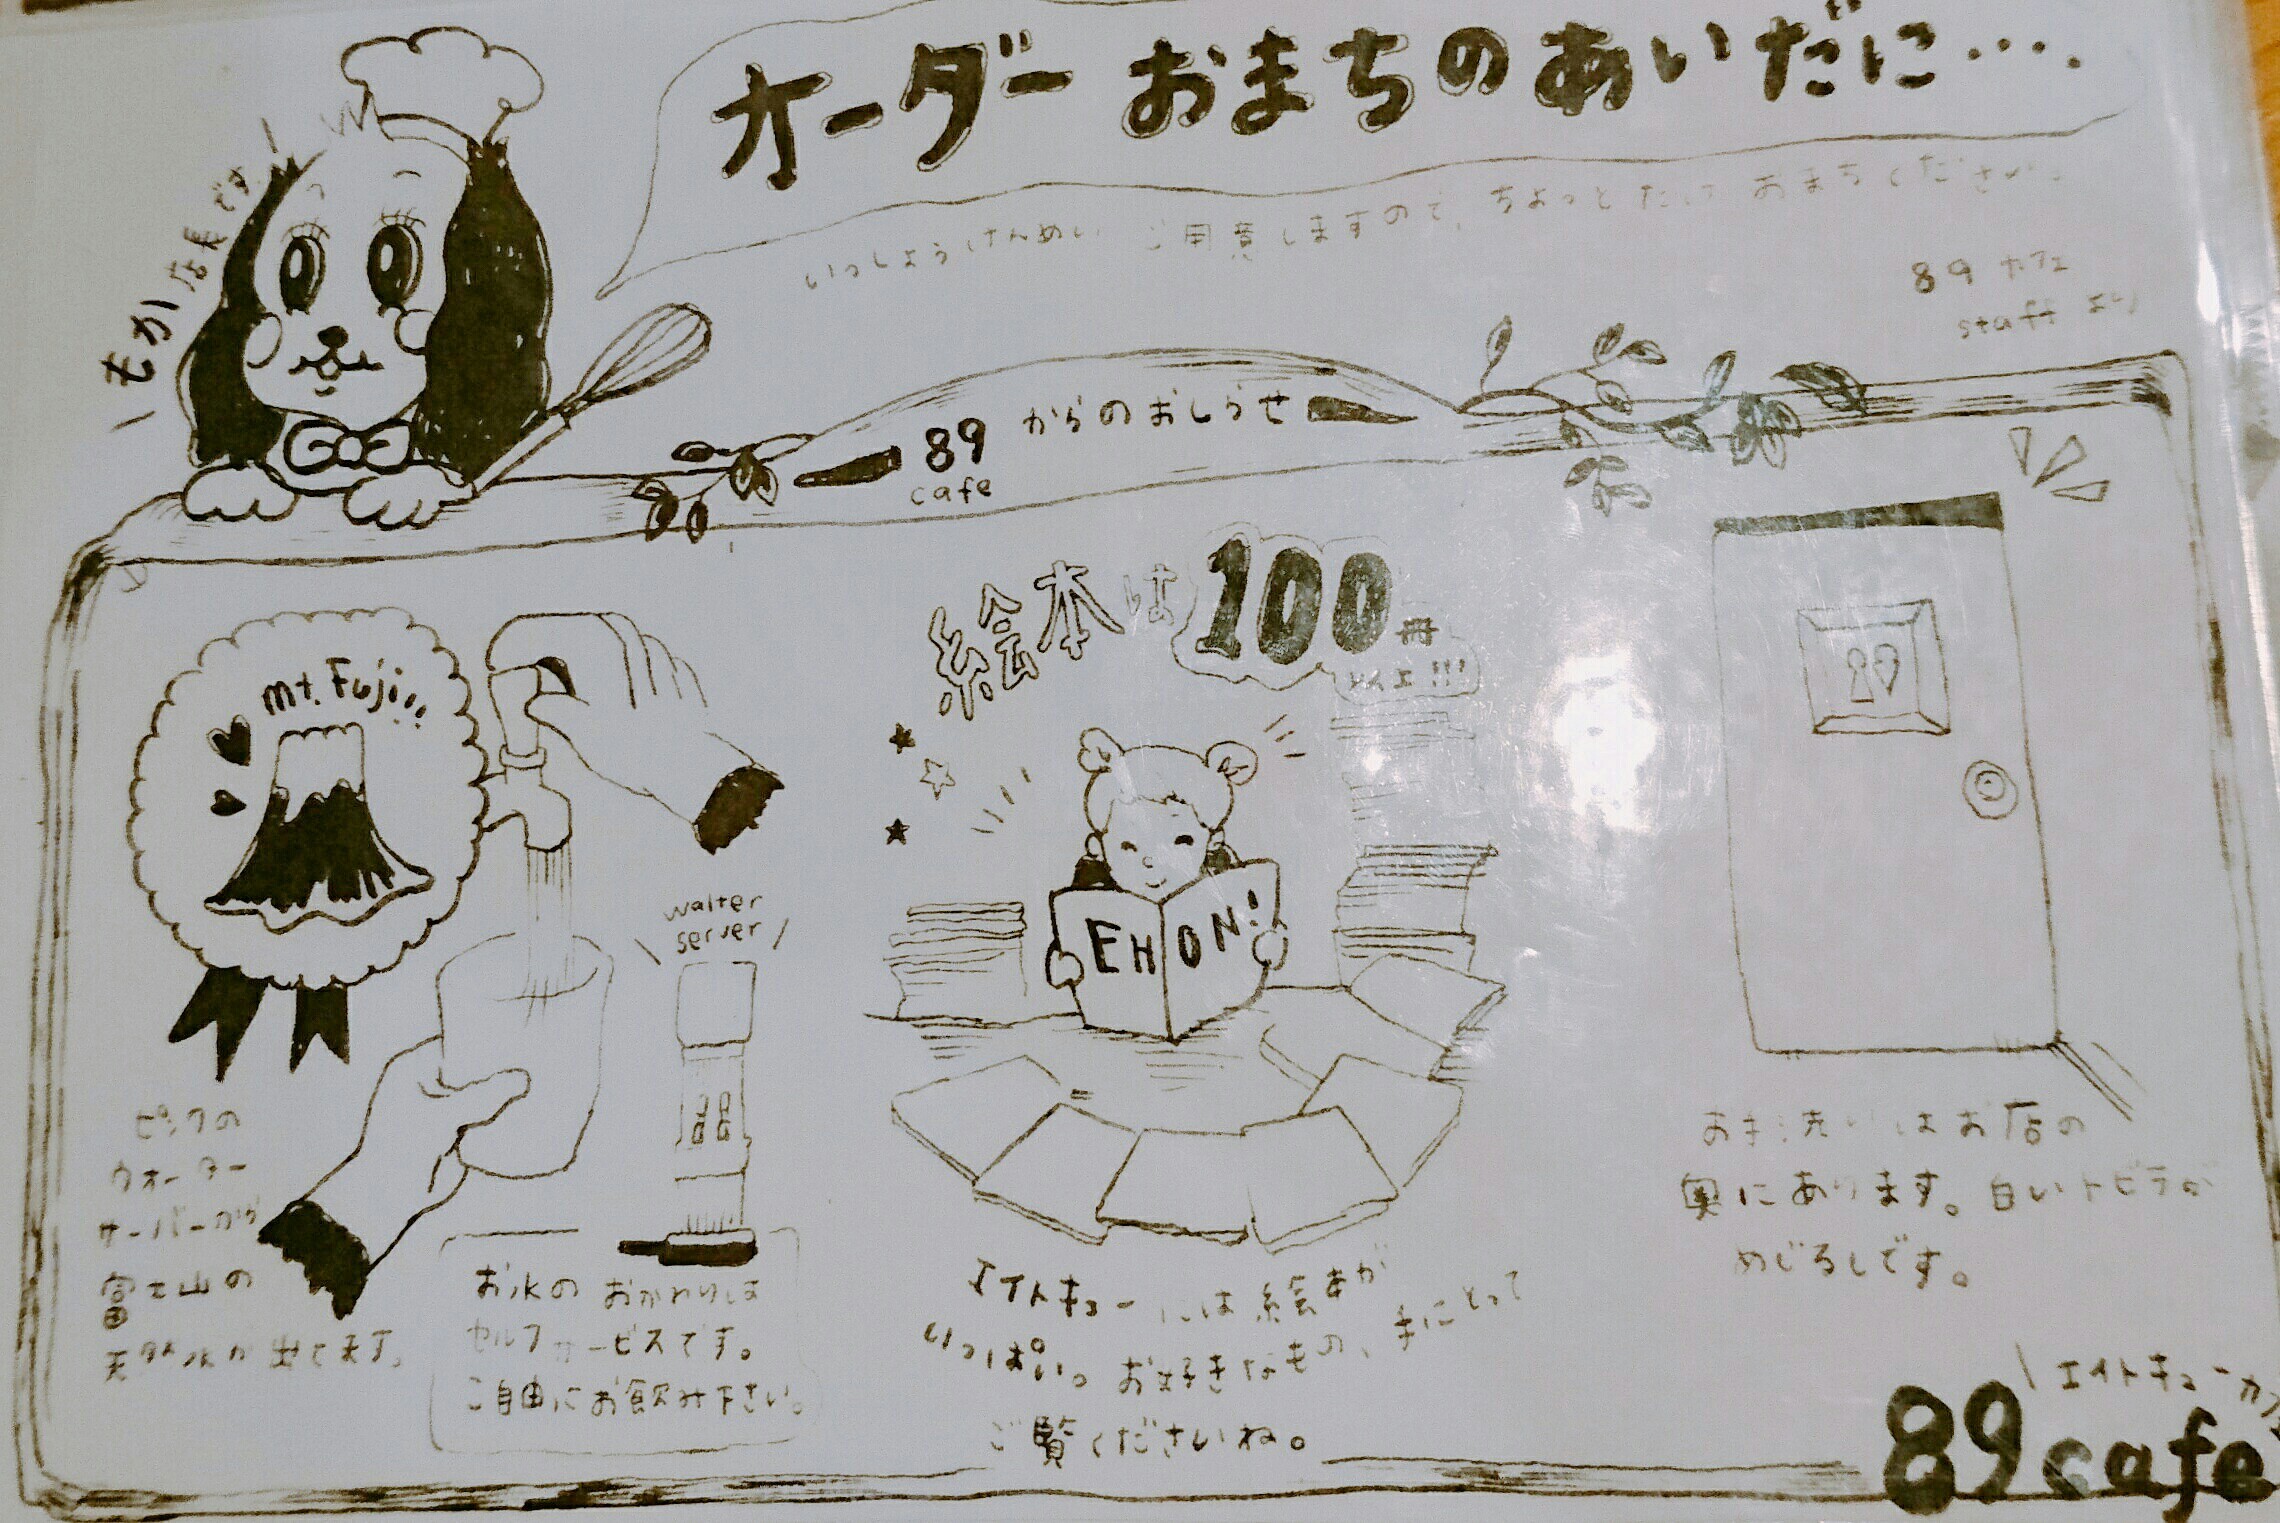 オーダー おまちのあいだに….
いっしょうけんめい ご用意しますので、ちょっとだけ おまちください。
89 カフェ
staff より
もか 店長です！
89 cafe からのおしらせ
mt. Fuji!!!
walter
server
ピンクの
ウォーター
サーバーから
富士山の
天然水が出てます。
お水の おかわりは
セルフサービスです。
ご自由にお飲み下さい。
絵本は100冊
イイエ!!!
EHON!
エイトキューには絵本が
いっぱい。お好きなもの、手にとって
ご覧くださいね。
お手洗いはお店の
奥にあります。白いトビラが
めじるしです。
エイトキューカフェ
89 cafe